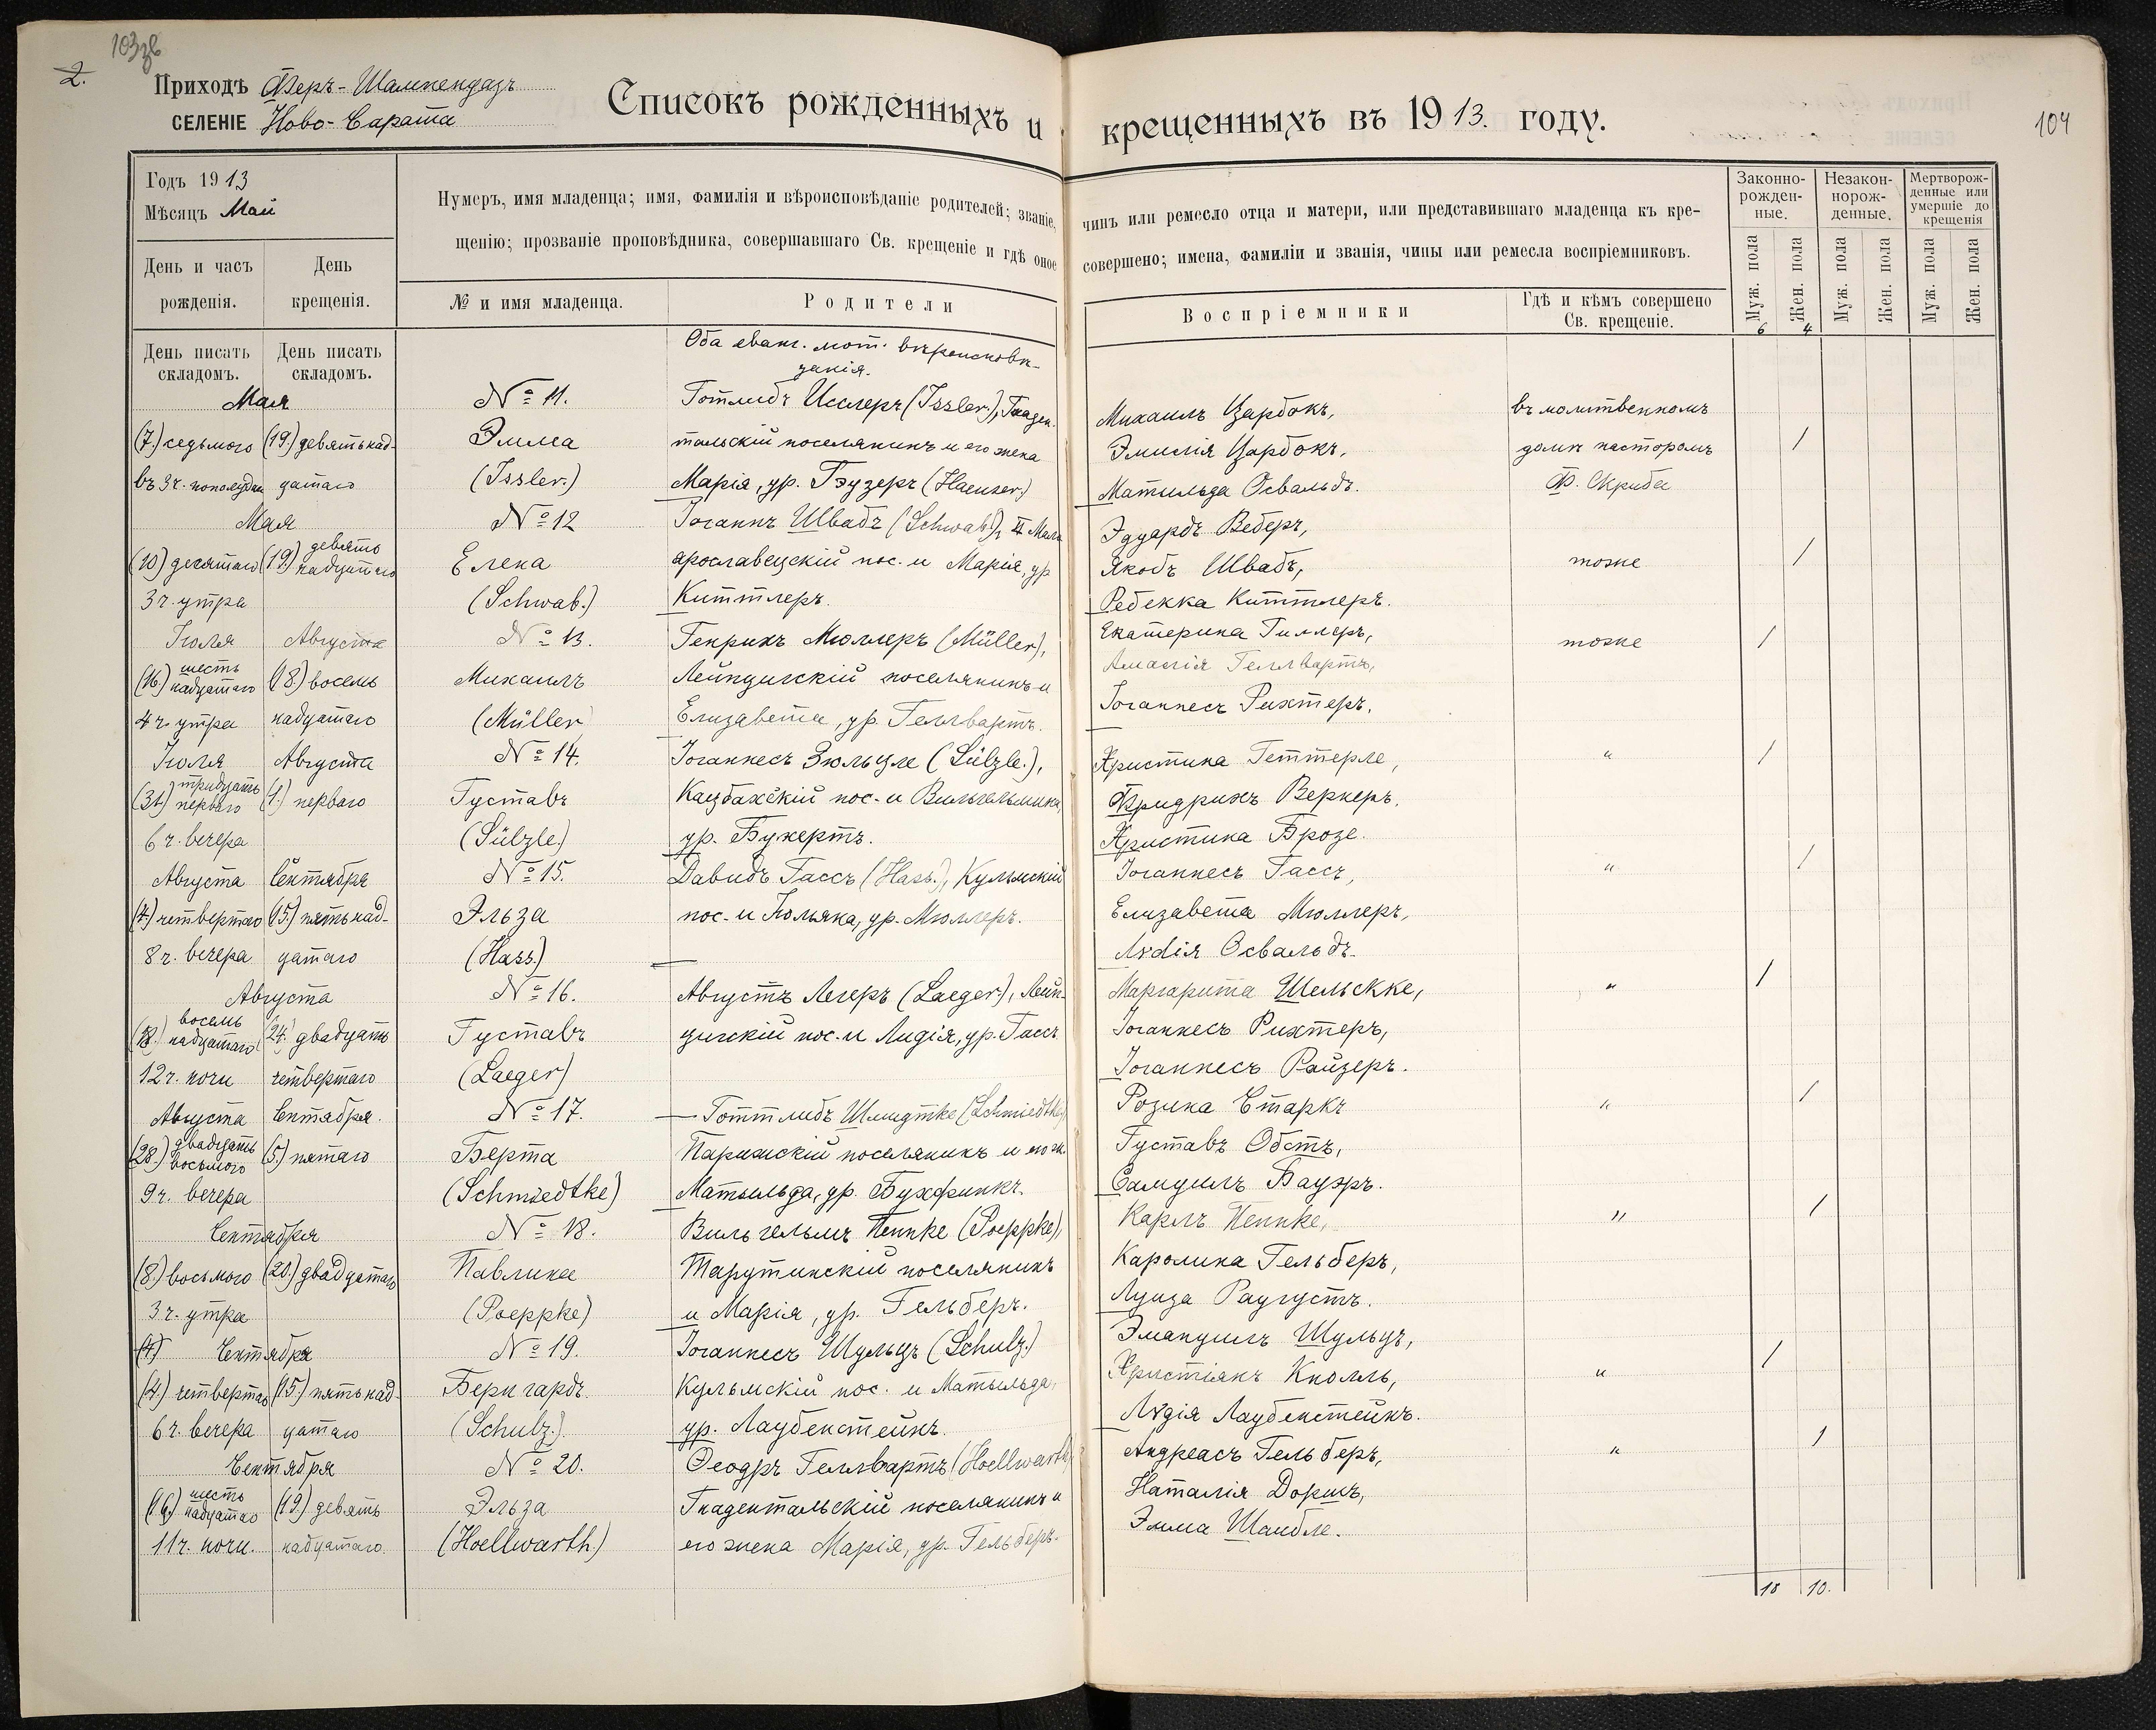 2.
103
Приходъ Феръ-Шампенуазъ
СЕЛЕНІЕ Ново-Сарата
Списокъ рожденныхъ и крещенныхъ въ 1913. году.
104
Годъ 1913
Мѣсяцъ Май
Нумеръ, имя младенца; имя, фамилія и вѣроисповѣданіе родителей; званіе, чинъ или ремесло отца и матери, или представившаго младенца къ кре-
щенію; прозваніе проповѣдника, совершавшаго Св. крещеніе и гдѣ оное совершено; имена, фамиліи и званія, чины или ремесла воспріемниковъ.
Законно-рожден-ные.
Незакон-норож-денные.
Мертворож-денные или умершіе до крещенія
Муж. пола
Жен. пола
Муж. пола
Жен. пола
Муж. пола
Жен. пола
6 4
День и часъ рожденія.
День крещенія.
№ и имя младенца.
Родители
Воспріемники
Гдѣ и кѣмъ совершено Св. крещеніе.
День писать складомъ.
День писать складомъ.
Оба еванг. лют. вѣроисповѣ-
данія.
Мая
№ 11.
Готлибъ Исслеръ (Issler.), Гнаден-
Михаилъ Царбокъ,
въ молитвенномъ
(7.) седьмого
(19.) девятьнад-
Эмма
тальскій поселянинъ и его жена
Эмилія Царбокъ,
домѣ пасторомъ
/
въ 3 ч. пополудни
цатаго
(Issler.)
Марія, ур. Гэузеръ (Haeuser.)
Матильда Освальдъ.
Ф. Скриба
Мая
№ 12
Іоганнъ Швабъ (Schwab.), II Мало
Эдуардъ Веберъ,
(10) десятаго
(19) девять надцатаго
Елена
ярославецскій пос. и Марія, ур
Якобъ Швабъ,
тоже
/
3 ч. утра
(Schwab.)
Киттлеръ.
Ребекка Киттлеръ.
Іюля
Августа
№ 13.
Генрихъ Мюллеръ (Müller),
Екатерина Гиллеръ,
тоже
/
(16.) шесть надцатаго
(18) восемь
Михаилъ
Лейпцигскій поселянинъ и
Амалія Геллвартъ,
4 ч. утра
надцатаго
(Müller)
Елизавета, ур. Геллвартъ.
Іоганнесъ Рихтеръ.
Іюля
Августа
№ 14.
Іоганнесъ Зюльцле (Sülzle.),
Христина Геттерле,
"
/
(31.) тридцать перваго
(1.) перваго
Густавъ
Кацбахскій пос. и Вильгельмина,
Фридрихъ Вернеръ,
6 ч. вечера
(Sülzle.)
ур. Букертъ.
Христина Брозе.
Августа
Сентября
№ 15.
Давидъ Гассъ (Hass.), Кульмскій
Іоганнесъ Гассъ,
"
/
(4.) четвертаго
(15.) пятьнад-
Эльза
пос. и Юльяна, ур. Мюллеръ.
Елизавета Мюллеръ,
8 ч. вечера
цатаго
(Hass.)
Лидія Освальдъ.
Августа
№ 16.
Августъ Легеръ (Laeger.), Лейп-
Маргарита Шельскке,
"
/
(18.) восемь надцатаго
(24.) двадцать
Густавъ
цигскій пос. и Лидія, ур. Гассъ.
Іоганнесъ Рихтеръ,
12 ч. ночи
четвертаго
(Laeger)
Іоганнесъ Райзеръ.
Августа
Сентября.
№ 17.
Готтлибъ Шмидтке (Schmiedtke)
Розина Старкъ
"
/
(28.) двадцать восьмого
(5.) пятаго
Берта
Парижскій поселянинъ и его ж.
Густавъ Обстъ,
9 ч. вечера
(Schmiedtke)
Матильда, ур. Бухфинкъ.
Самуилъ Бауэръ.
Сентября
№ 18.
Вильгельмъ Пеппке (Poeppke),
Карлъ Пеппке,
"
/
(8.) восьмого
(20.) двадцатаго
Павлина
Тарутинскій поселянинъ
Каролина Гельберъ,
3 ч. утра
(Poeppke)
и Марія, ур. Гельберъ.
Луиза Раугустъ.
(4)
Сентября
№ 19.
Іоганнесъ Шульцъ (Schulz.)
Эмануилъ Шульцъ,
/
(4.) четвертаго
(15.) пятьнад-
Бернгардъ.
Кульмскій пос. и Матильда,
Христіанъ Кнолль,
"
6 ч. вечера
цатаго
(Schulz.)
ур. Лаубенстейнъ.
Лидія Лаубенстейнъ.
Сентября
№ 20.
Ѳеодръ Геллвартъ (Hoellwarth)
Андреасъ Гельберъ,
"
/
(16.) шесть надцатаго
(19.) девять
Эльза
Гнадентальскій поселянинъ и
Наталія Доршъ,
11 ч. ночи.
надцатаго.
(Hoellwarth.)
его жена Марія, ур. Гельберъ.
Эмма Шаибле.
10 10.